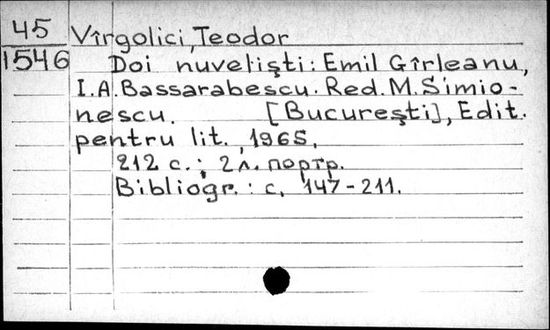 45 Vîrgolici, Teodor
1546 Doi nuvelişti: Emil Gîrleanu,
I.A. Bassarabescu. Red. M. Simio-
nescu. [Bucureşti], Edit.
pentru lit., 1965,
212 с.; 2 л. портр.
Bibliogr.: с. 147-211.